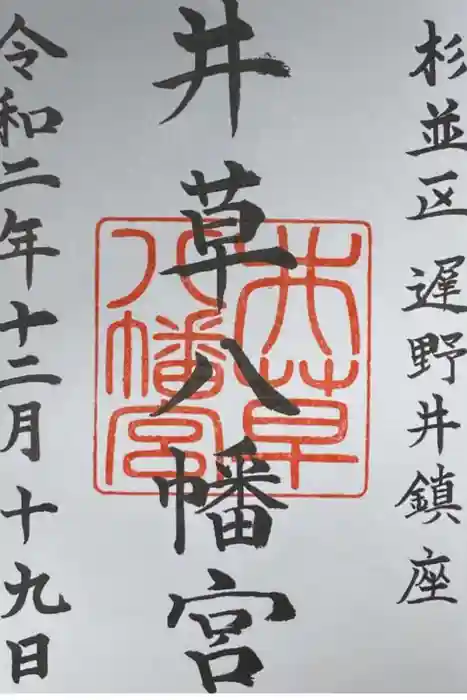 杉並区遅野井鎮座
井草八幡宮
井草八幡宮
令和二年十二月十九日